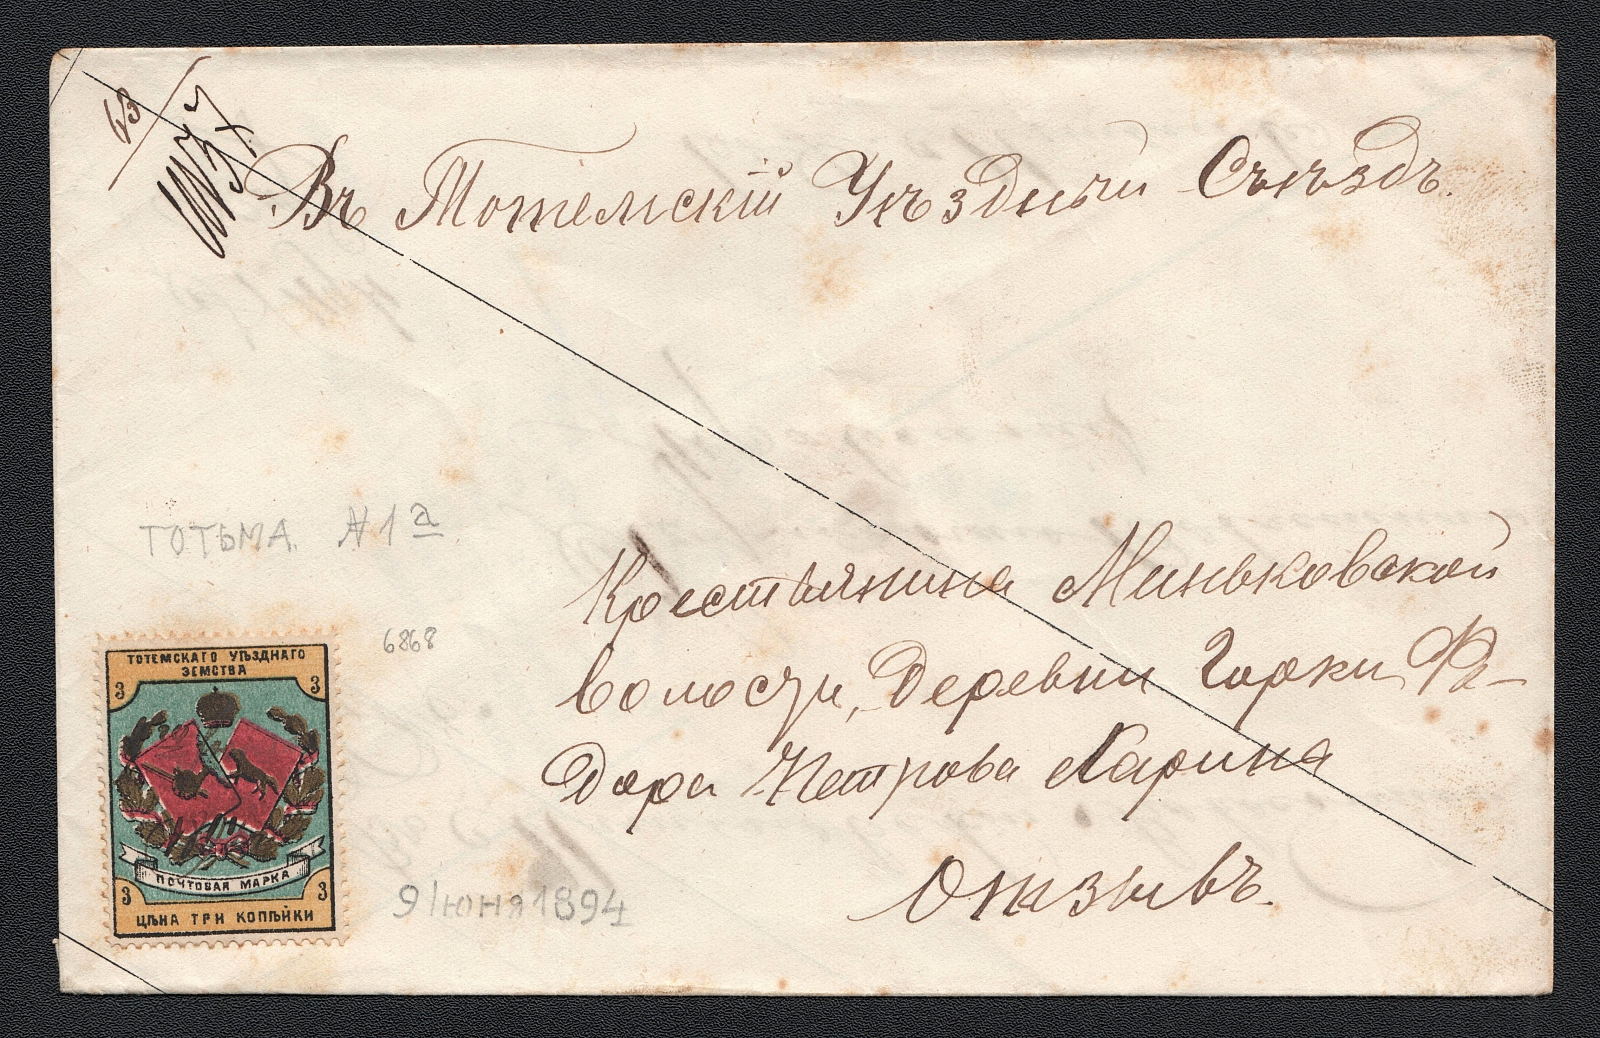 63
Въ Тотемскій Уѣздный Съѣздъ.
ТОТЬМА. №1а.
Крестьянина Миньковской
волости, Деревни Горки Фе-
дора Петрова Харина
Отзывъ.
6868
9 Июня 1894
ТОТЕМСКАГО УѢЗДНАГО
ЗЕМСТВА
3 3
ПОЧТОВАЯ МАРКА
3 3
ЦѢНА ТРИ КОПѢЙКИ